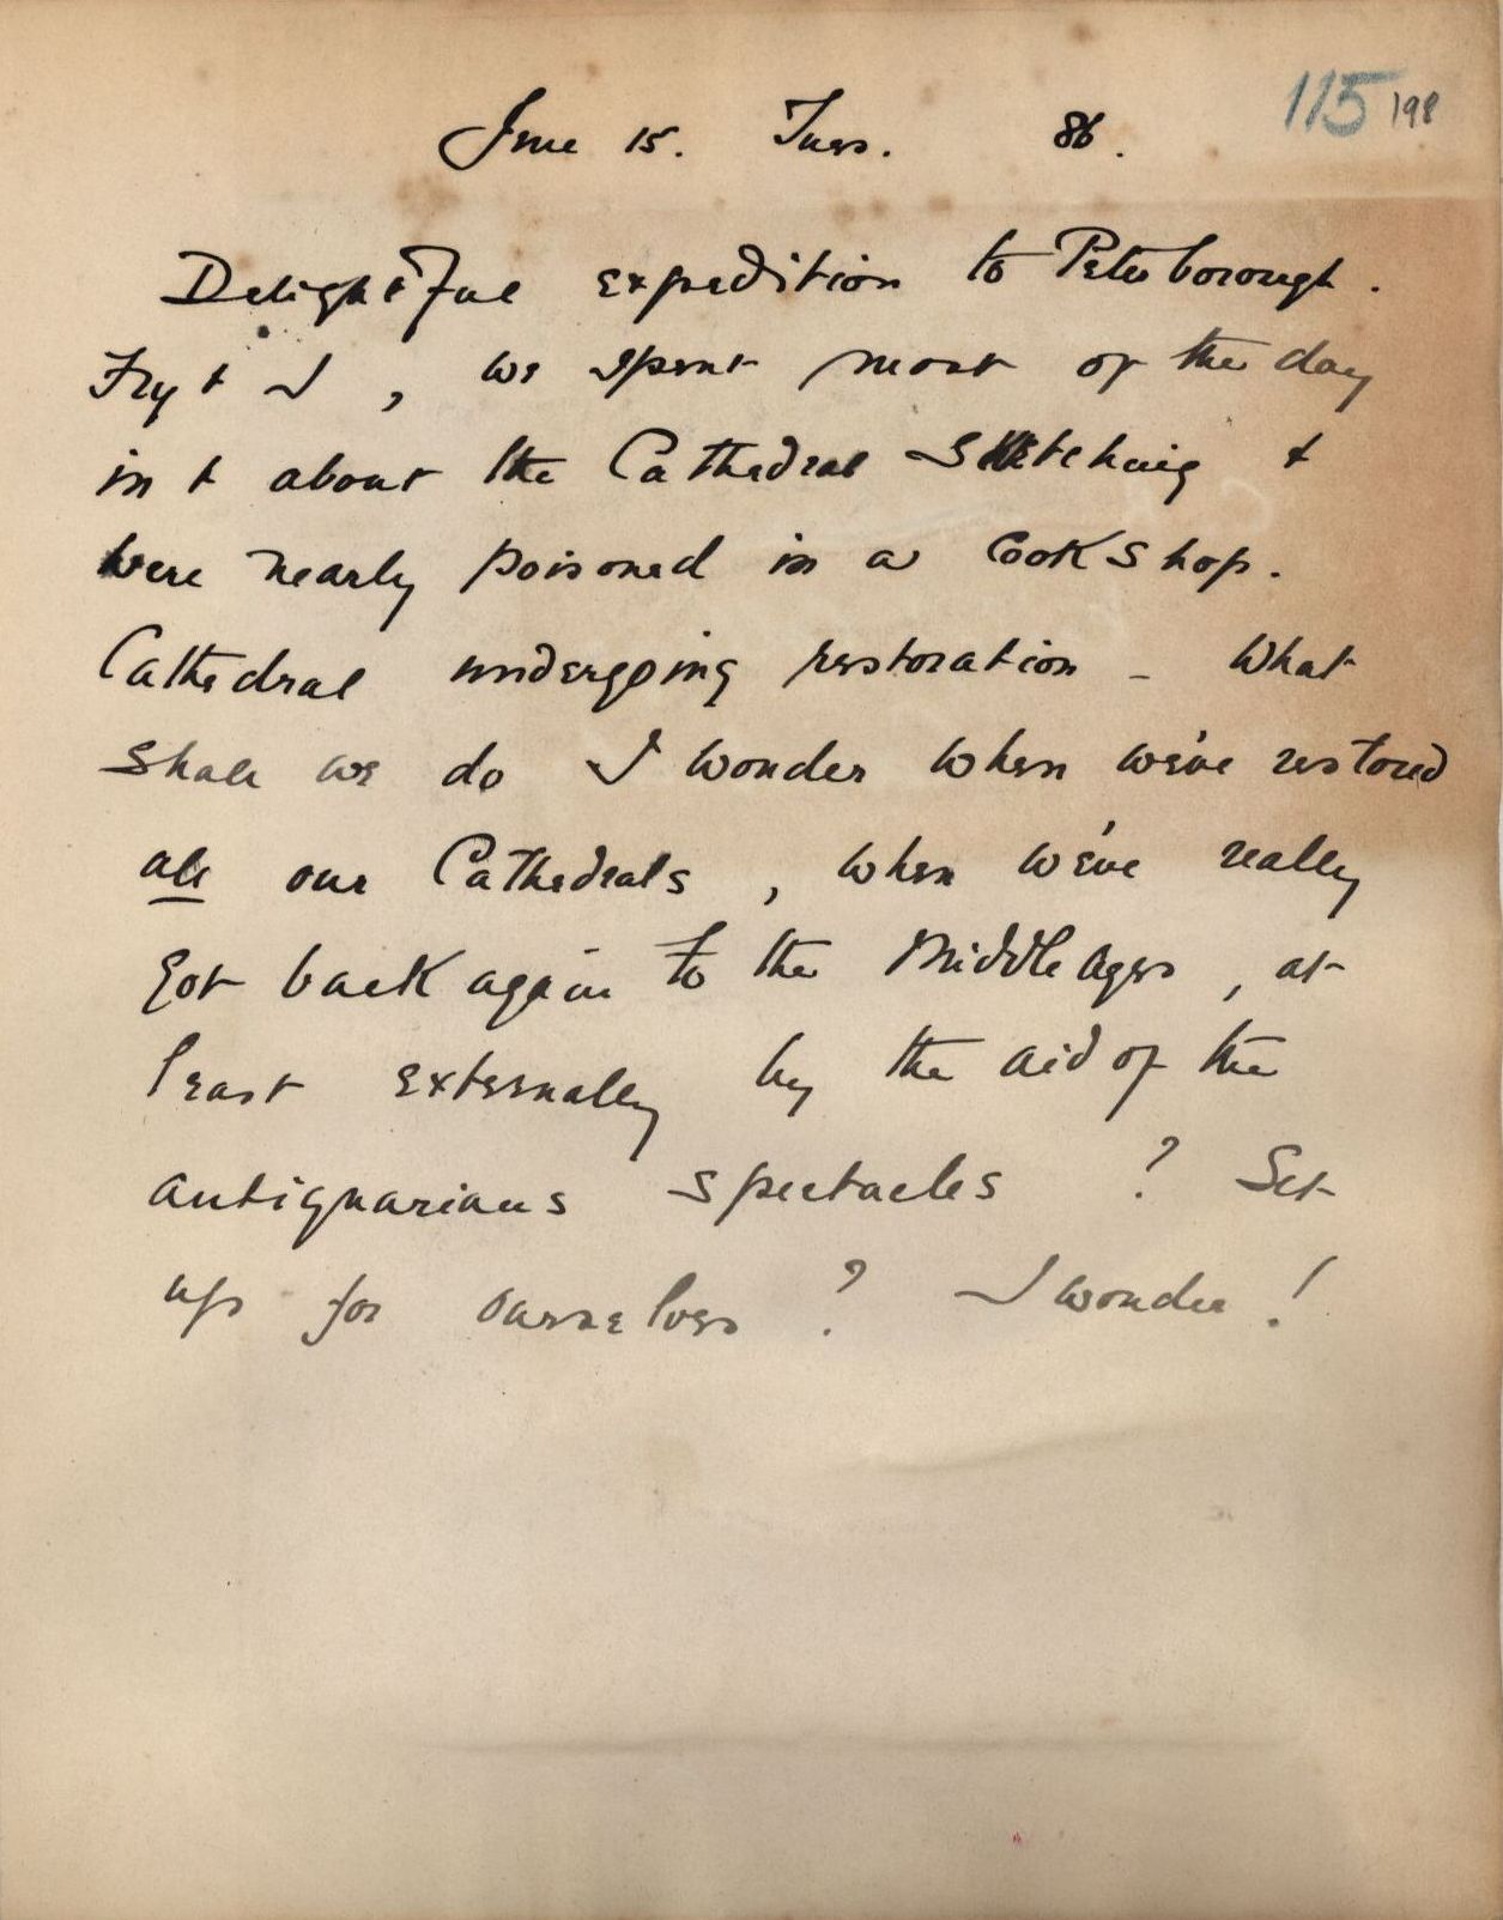 115 198
June 15. Tues. 86.
Delightful expedition to Peterborough.
Fry & I, we spent most of the day
in & about the Cathedral sketching &
were nearly poisoned in a Cook Shop.
Cathedral undergoing restoration - What
shall we do I wonder when we've restored
all our Cathedrals, when we've really
got back again to the Middle Ages, at
least externally by the aid of the
antiquarians spectacles? Set
up for ourselves? I wonder!